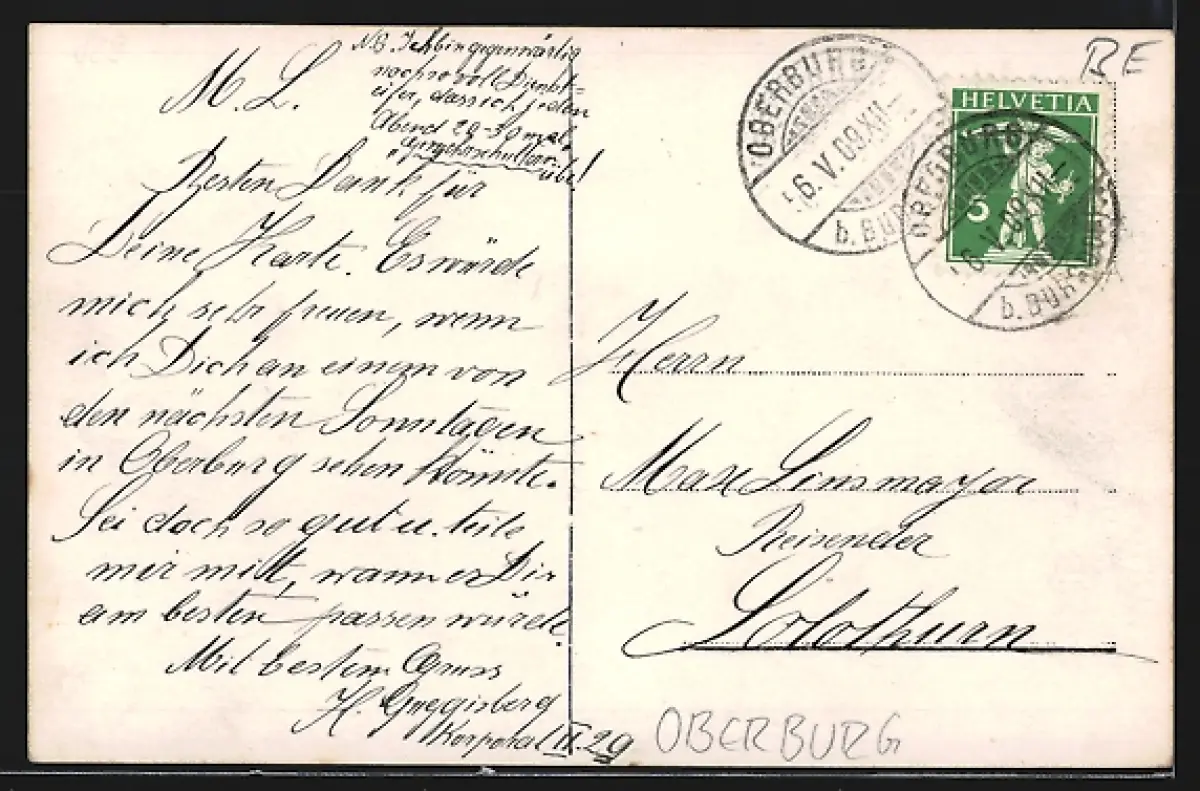 NB. Ich bin gegenwärtig
noch so voll Dienst-
eifer, dass ich jeden
Abend 29-30 mal
übe!
M. L.
Besten Dank für
Deine Karte. Es würde
mich sehr freuen, wenn
ich Dich an einem von
den nächsten Sonntagen
in Oberburg sehen könnte.
Sei doch so gut u. teile
mir mitt, wann es Dir
am besten passen würde.
Mit bestem Gruss
H.
Korporal III. 29
BE
HELVETIA
5
OBERBURG
6. V. 09. XII-
b. BURGDORF
OBERBURG
6. V. 09. XII-
b. BURGDORF
Herrn
Max Linsmayer
Reisender
Solothurn
OBERBURG